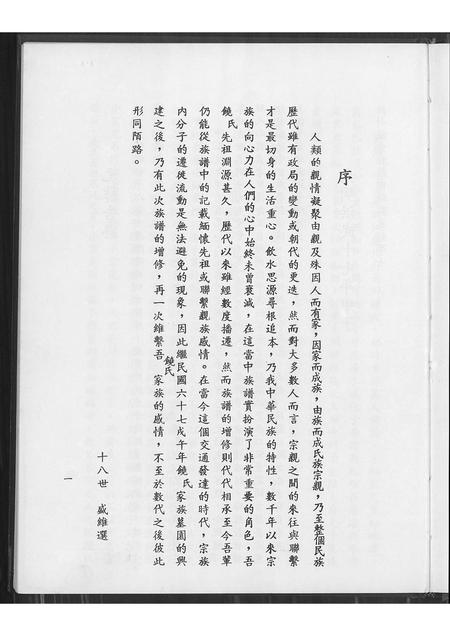 序
人類的親情凝聚由親及殊因人而有家，因家而成族，由族而成氏族宗親，乃至整個民族
歷代雖有政局的變動或朝代的更迭，然而對大多數人而言，宗親之間的來往與聯繫
才是最切身的生活重心。飲水思源尋根追本，乃我中華民族的特性，數千年以來宗
族的向心力在人們的心中始終未曾衰減，在這當中族譜實扮演了非常重要的角色，吾
饒氏先祖淵源甚久，歷代以來雖經數度播遷，然而族譜的增修則代代相承至今吾輩
仍能從族譜中的記載緬懷先祖或聯繫親族感情。在當今這個交通發達的時代，宗族
內分子的遷徙流動是無法避免的現象，因此繼民國六十七戊午年饒氏家族墓園的興
建之後，乃有此次族譜的增修，再一次維繫吾饒氏家族的感情，不至於數代之後彼此
形同陌路。
十八世　盛維選
一